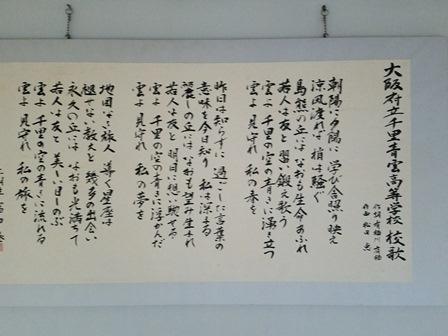 大阪府立千里青雲高等学校 校歌
朝陽に夕陽に 学び舎照り映え
涼風渡れば 梢は騒ぐ
鳥熊の丘には なおも生命あふれ
若人は友と 習い鍛え歌う
雲よ 千里の空の青さに湧き立つ
雲よ 見守れ 私の今を
昨日は知らずに 過ごした言葉の
意味を今日知り 私は深まる
麗しの丘には なおも望み生まれ
若人は友と 明日に想い馳せる
雲よ 千里の空の青さに浮かんだ
雲よ 見守れ 私の夢を
地図なき旅人 導く星座は
褪せない教えと 幾多の出会い
永久の丘には なおも光満ちて
若人は友と 美しい日しのぶ
雲よ 千里の空の青さに流れる
雲よ 見守れ 私の旅を